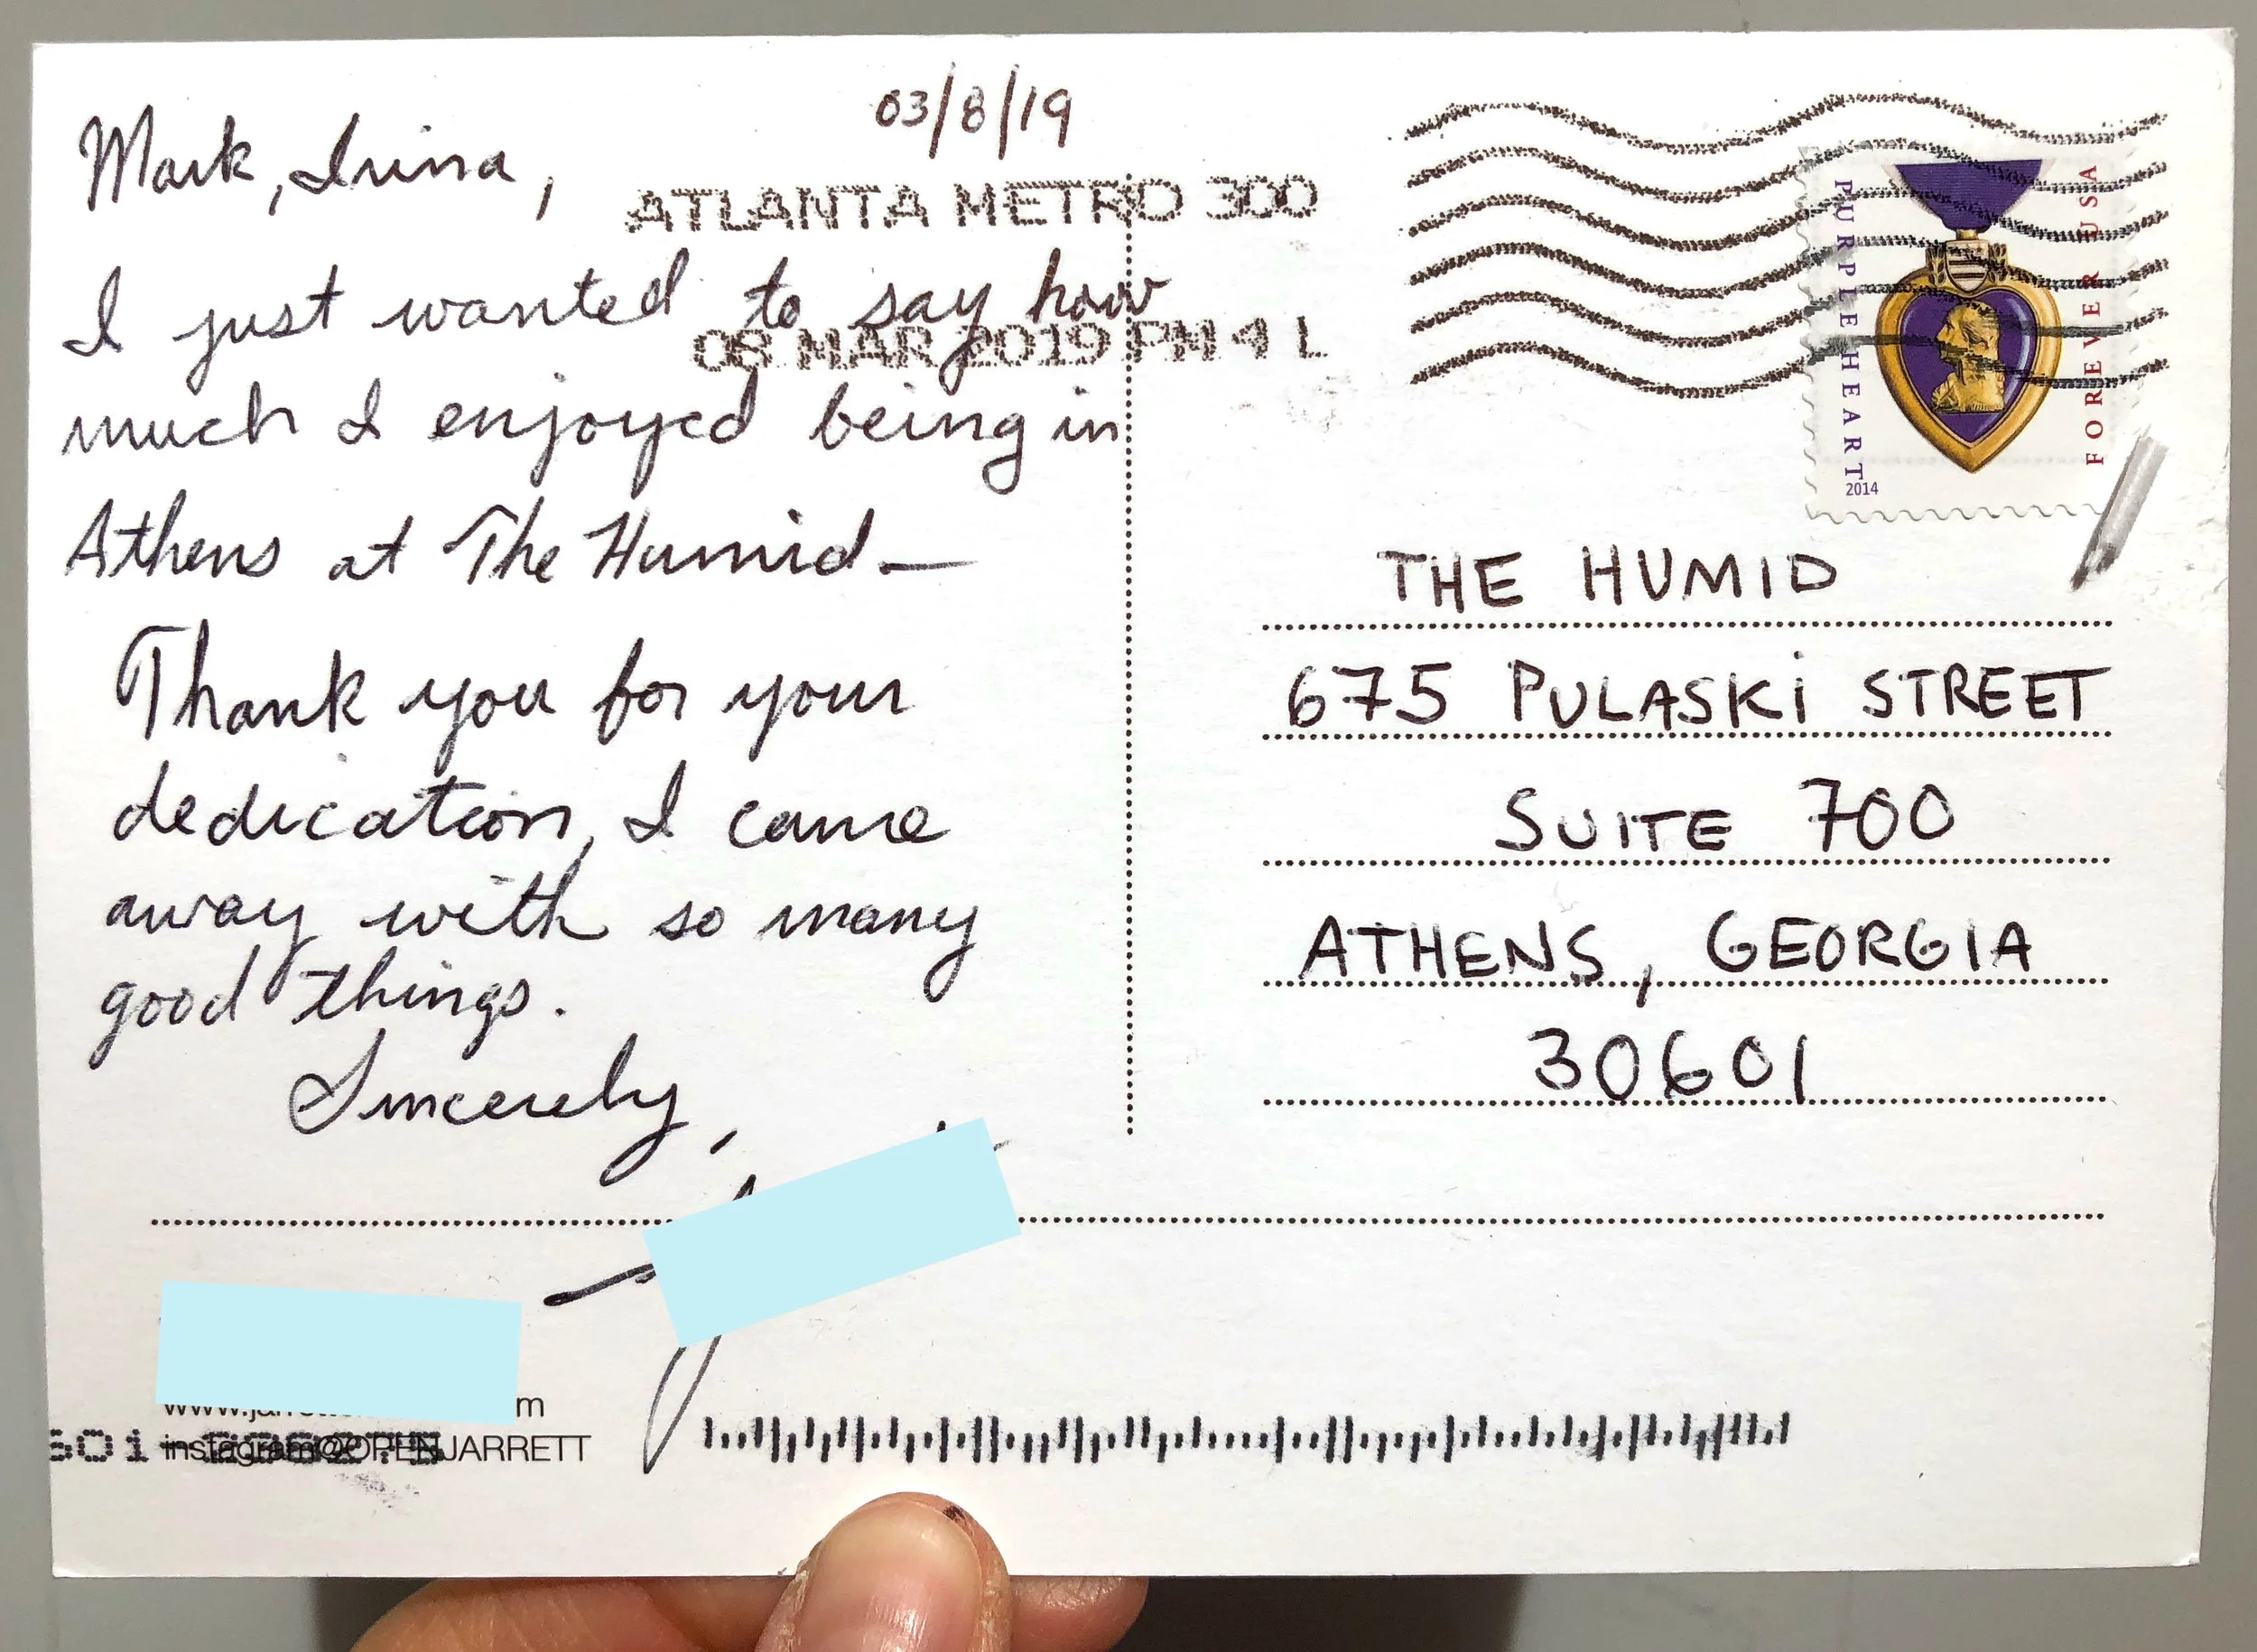 03/8/19
Mark, Irina,
ATLANTA METRO 300
I just wanted to say how
08 MAR 2019 PM 4 L
much I enjoyed being in
Athens at The Humid—
Thank you for your
dedication, I came
away with so many
good things.
Sincerely,
instagram@OPENJARRETT
PURPLE HEART
2014
FOREVER USA
THE HUMID
675 PULASKi STREET
SUITE 700
ATHENS, GEORGIA
30601